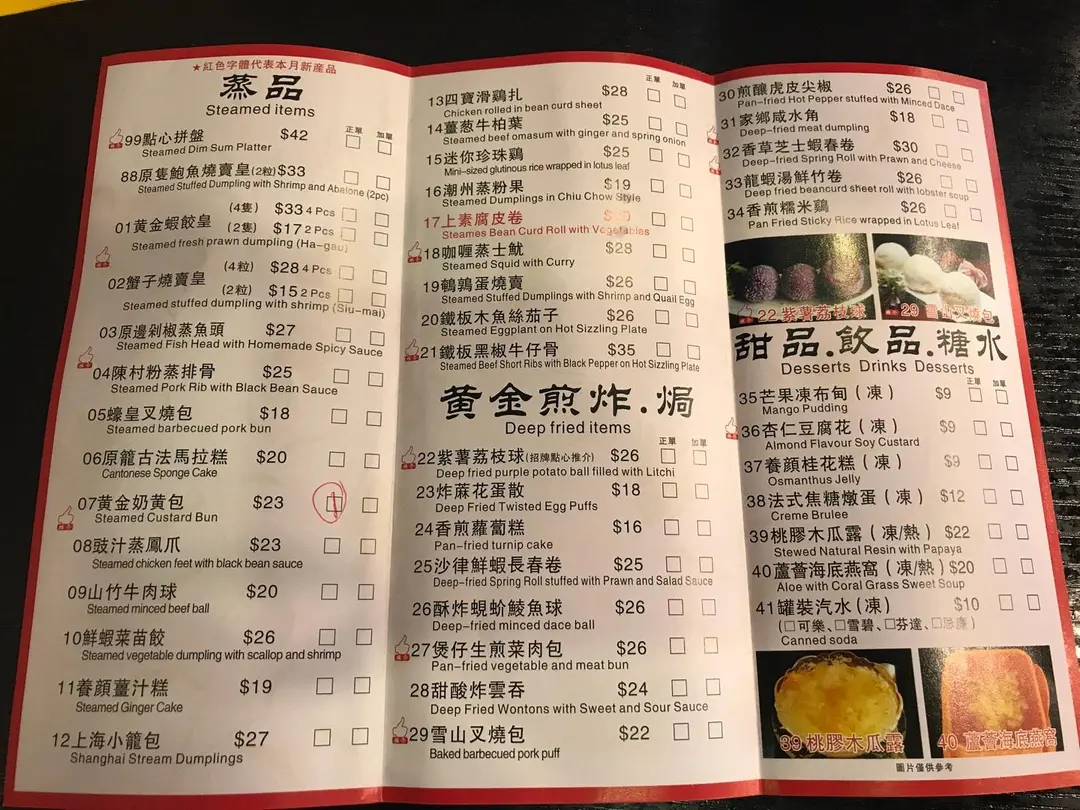 ★紅色字體代表本月新產品
蒸品
Steamed items
正單 加單
99點心拼盤 $42
Steamed Dim Sum Platter
88原隻鮑魚燒賣皇(2粒)$33
Steamed Stuffed Dumpling with Shrimp and Abalone (2pc)
01黃金蝦餃皇
(4隻) $33 4 Pcs
(2隻) $17 2 Pcs
Steamed fresh prawn dumpling (Ha-gau)
02蟹子燒賣皇
(4粒) $28 4 Pcs
(2粒) $15 2 Pcs
Steamed stuffed dumpling with shrimp (Siu-mai)
03原邊剁椒蒸魚頭 $27
Steamed Fish Head with Homemade Spicy Sauce
04陳村粉蒸排骨 $25
Steamed Pork Rib with Black Bean Sauce
05蠔皇叉燒包 $18
Steamed barbecued pork bun
06原籠古法馬拉糕 $20
Cantonese Sponge Cake
07黃金奶黃包 $23
Steamed Custard Bun
08豉汁蒸鳳爪 $23
Steamed chicken feet with black bean sauce
09山竹牛肉球 $20
Steamed minced beef ball
10鮮蝦菜苗餃 $26
Steamed vegetable dumpling with scallop and shrimp
11養顔薑汁糕 $19
Steamed Ginger Cake
12上海小籠包 $27
Shanghai Stream Dumplings
正單 加單
13四寶滑鷄扎 $28
Chicken rolled in bean curd sheet
14薑葱牛柏葉 $25
Steamed beef omasum with ginger and spring onion
15迷你珍珠鷄 $25
Mini-sized glutinous rice wrapped in lotus leaf
16潮州蒸粉果 $19
Steamed Dumplings in Chiu Chow Style
17上素腐皮卷
Steames Bean Curd Roll with Vegetables
18咖喱蒸土魷 $28
Steamed Squid with Curry
19鵪鶉蛋燒賣 $26
Steamed Stuffed Dumplings with Shrimp and Quail Egg
20鐵板木魚絲茄子 $26
Steamed Eggplant on Hot Sizzling Plate
21鐵板黑椒牛仔骨 $35
Steamed Beef Short Ribs with Black Pepper on Hot Sizzling Plate
黃金煎炸.焗
Deep fried items
正單 加單
22紫薯荔枝球(招牌點心推介) $26
Deep fried purple potato ball filled with Litchi
23炸蔴花蛋散 $18
Deep Fried Twisted Egg Puffs
24香煎蘿蔔糕 $16
Pan-fried turnip cake
25沙律鮮蝦長春卷 $25
Deep-fried Spring Roll stuffed with Prawn and Salad Sauce
26酥炸蜆蚧鯪魚球 $26
Deep-fried minced dace ball
27煲仔生煎菜肉包 $26
Pan-fried vegetable and meat bun
28甜酸炸雲吞 $24
Deep Fried Wontons with Sweet and Sour Sauce
29雪山叉燒包 $22
Baked barbecued pork puff
正單 加單
30煎釀虎皮尖椒 $26
Pan-fried Hot Pepper stuffed with Minced Dace
31家鄉咸水角 $18
Deep-fried meat dumpling
32香草芝士蝦春卷 $30
Deep-fried Spring Roll with Prawn and Cheese
33龍蝦湯鮮竹卷 $26
Deep fried beancurd sheet roll with lobster soup
34香煎糯米鷄 $26
Pan Fried Sticky Rice wrapped in Lotus Leaf
22 紫薯荔枝球
29 雪山叉燒包
甜品.飲品.糖水
Desserts Drinks Desserts
正單 加單
35芒果凍布甸 ( 凍 ) $9
Mango Pudding
36杏仁豆腐花 ( 凍 ) $9
Almond Flavour Soy Custard
37養顔桂花糕 ( 凍 ) $9
Osmanthus Jelly
38法式焦糖燉蛋 ( 凍 ) $12
Creme Brulee
39桃膠木瓜露 ( 凍/熱 ) $22
Stewed Natural Resin with Papaya
40蘆薈海底燕窩 ( 凍/熱 ) $20
Aloe with Coral Grass Sweet Soup
41罐裝汽水 ( 凍 ) $10
(□可樂、□雪碧、□芬達、□忌廉)
Canned soda
39 桃膠木瓜露
40 蘆薈海底燕窩
圖片僅供參考